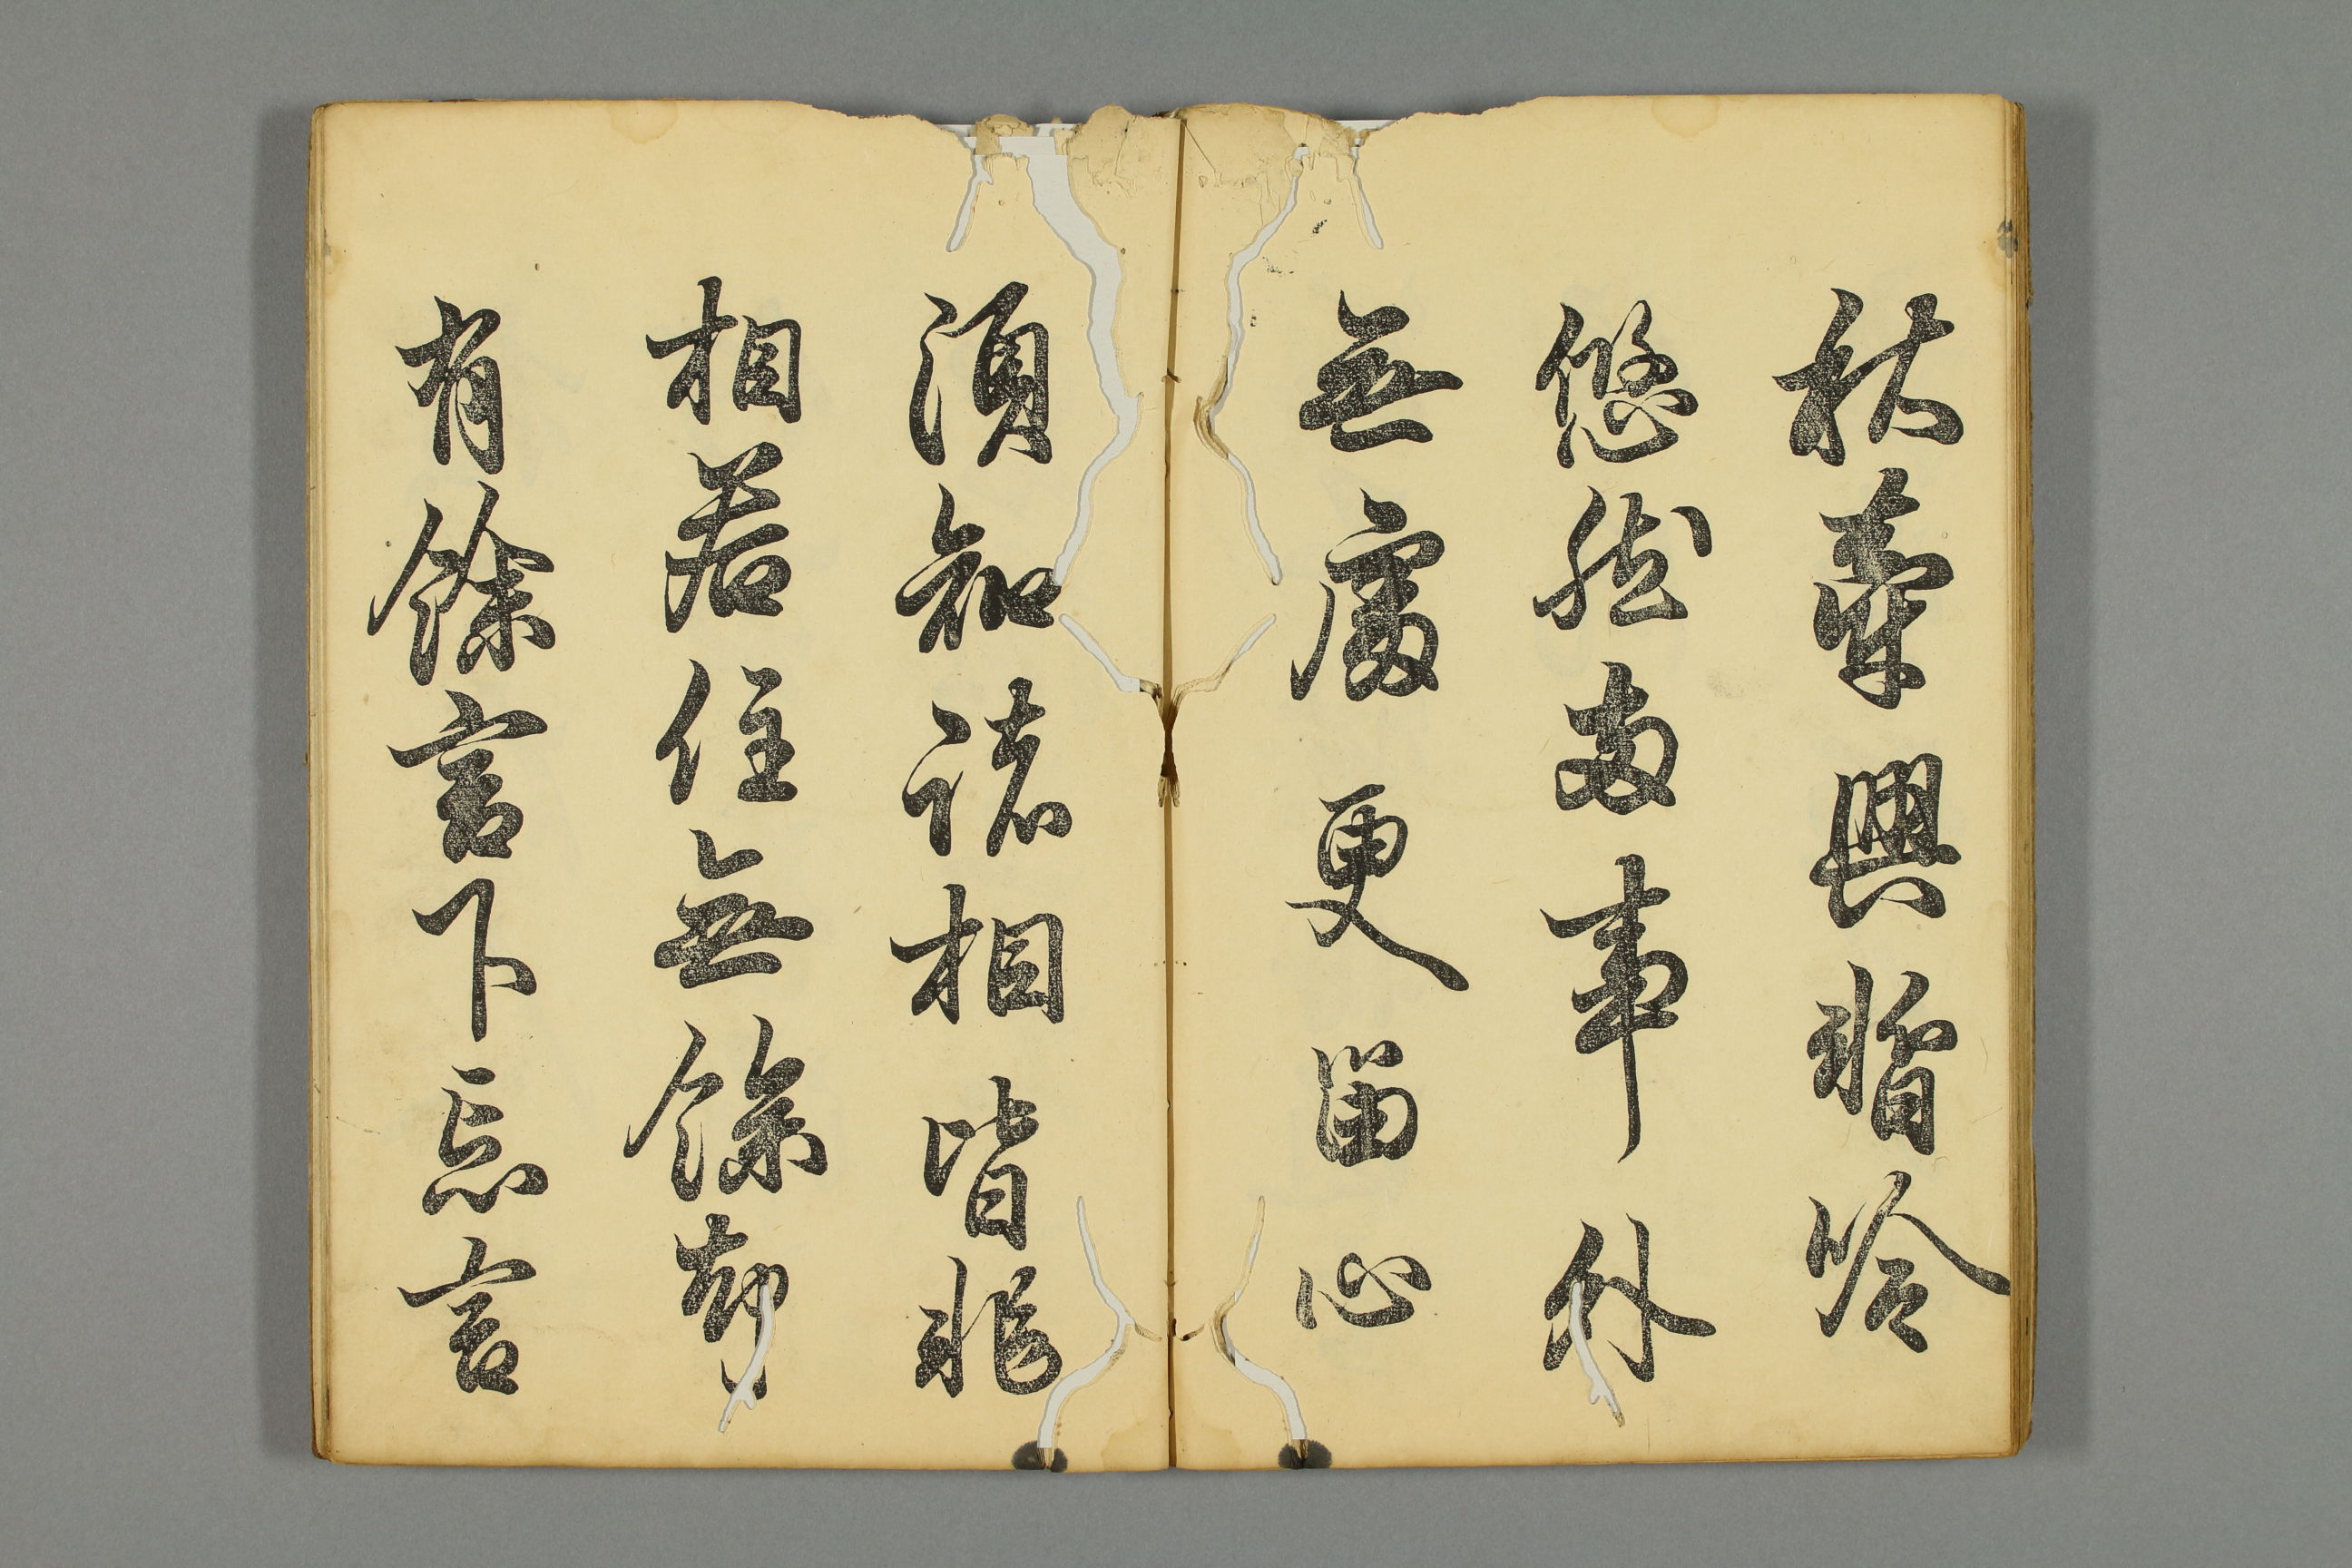 秋牽興暫吟
悠然兩事外
無處更留心
須知諸相皆非
相若住無餘却
有餘言下忘言